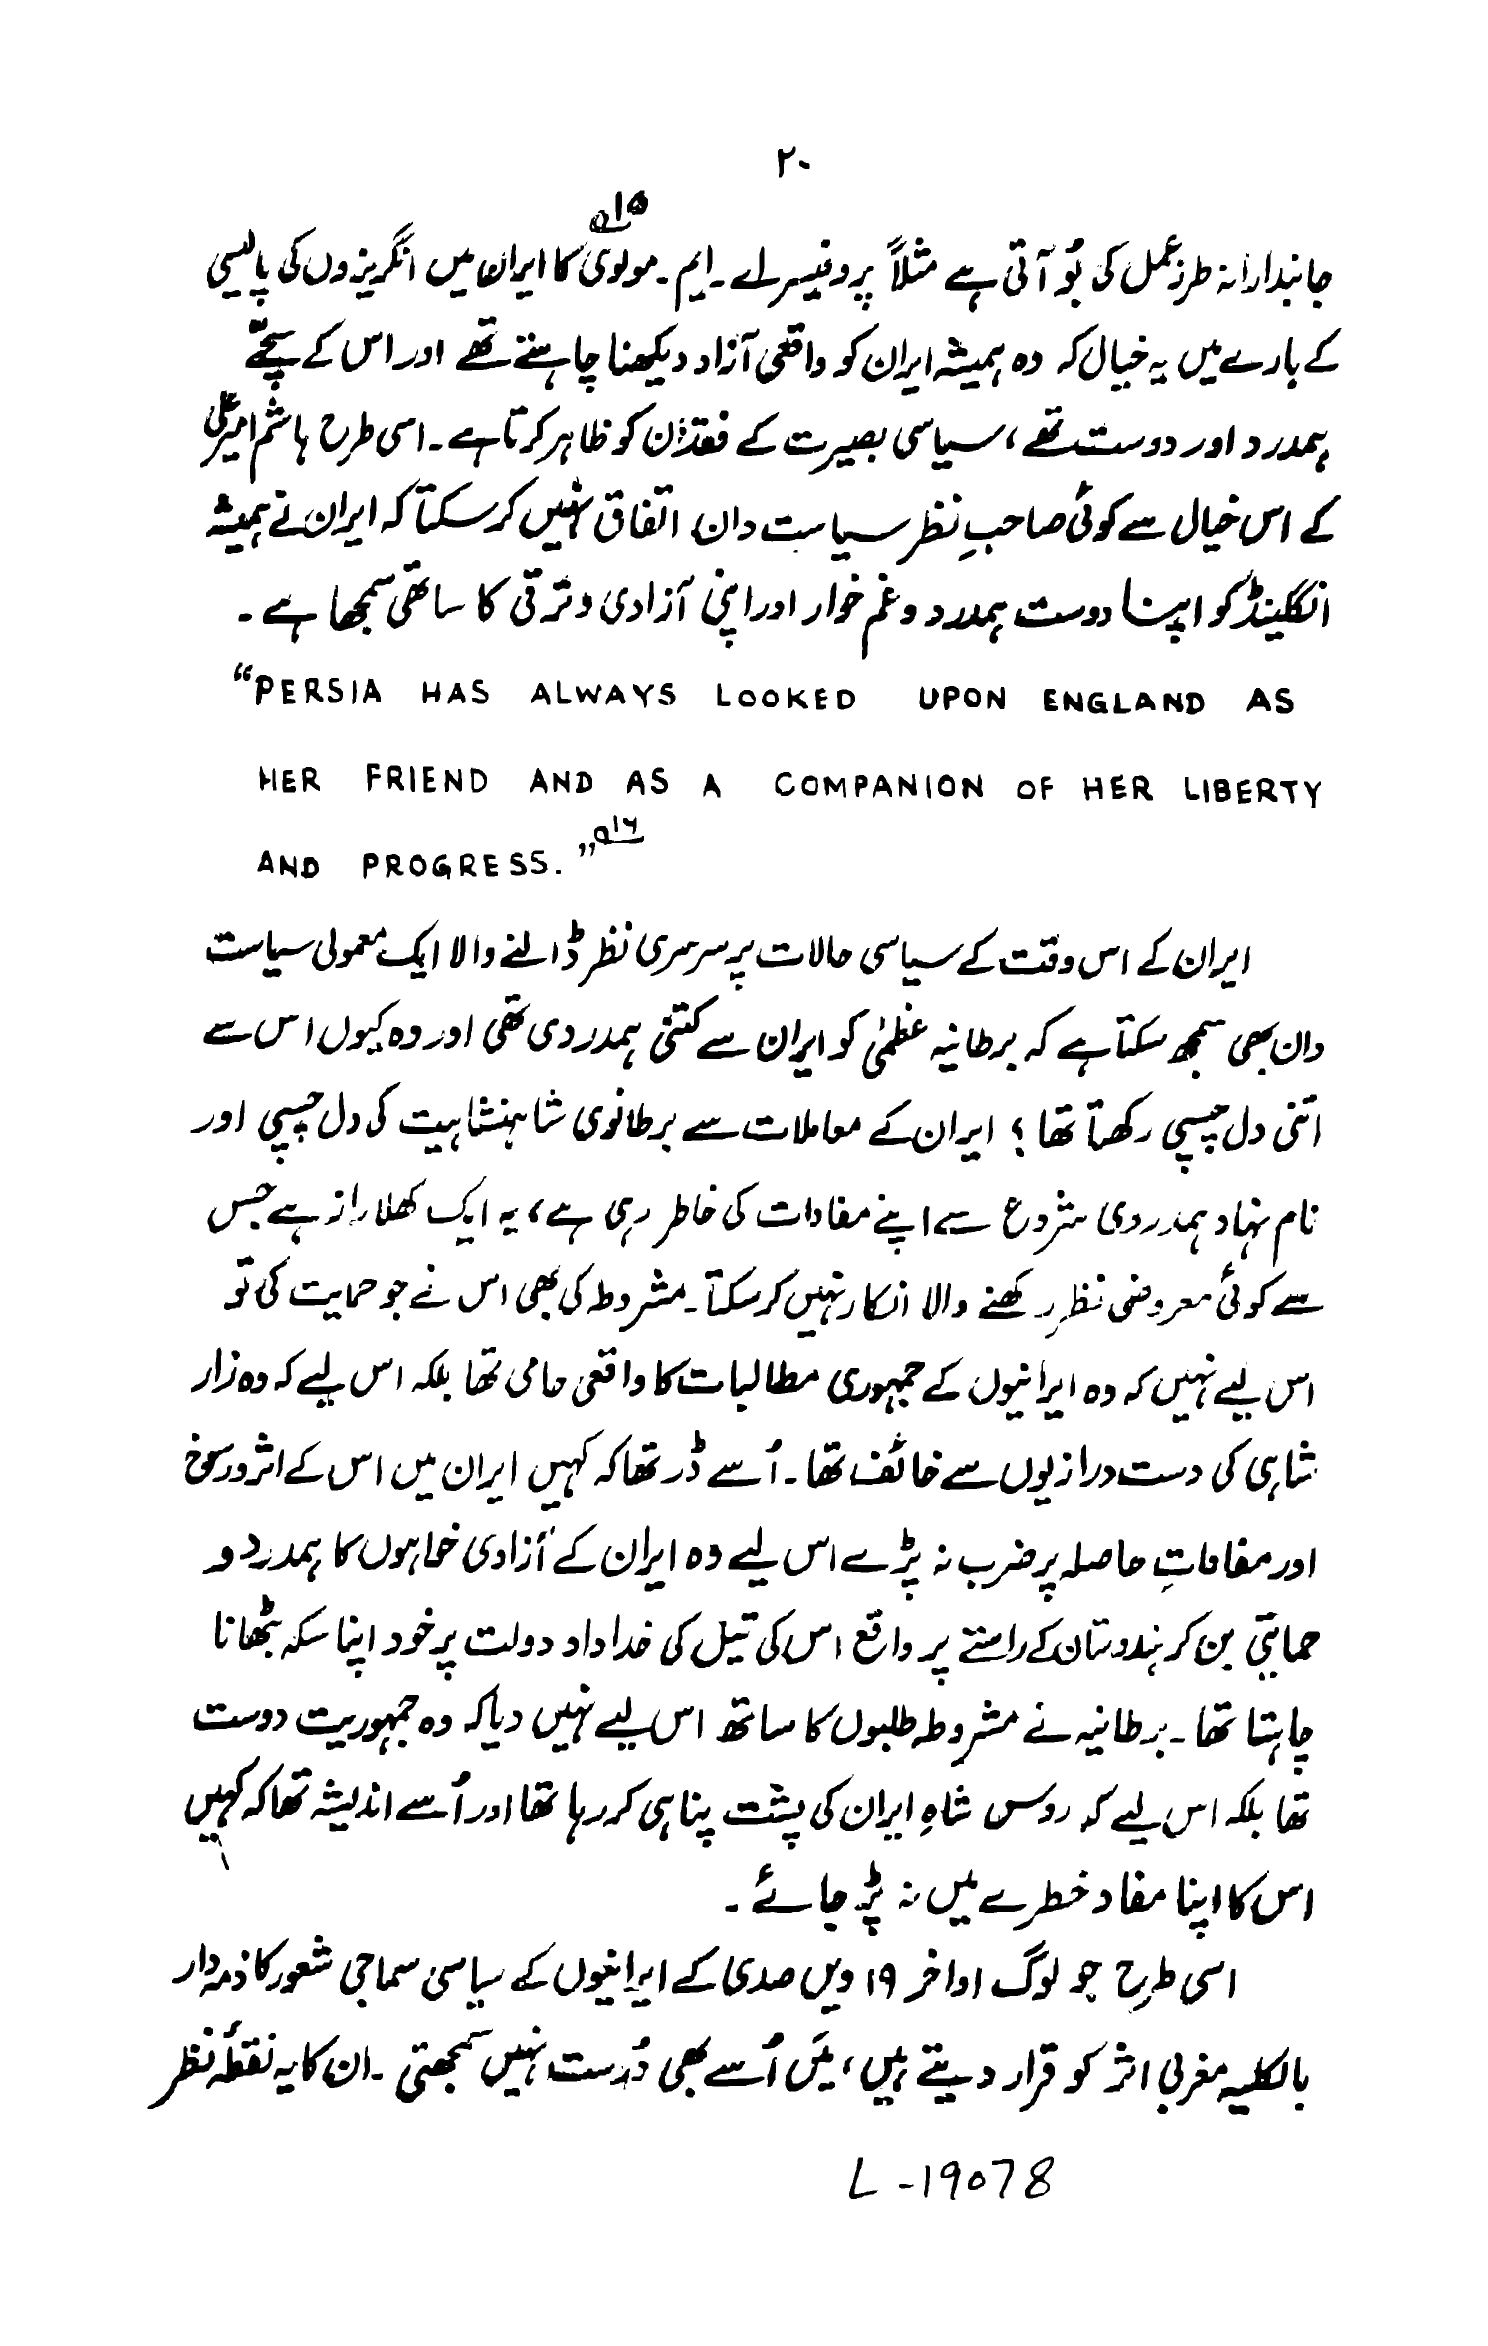 ۲۰
جانبدارانہ طرزِ عمل کی بُو آتی ہے مثلاً پروفیسر اے۔ ایم۔ مولوی۱۵ کا ایران میں انگریزوں کی پالیسی
کے بارے میں یہ خیال کہ وہ ہمیشہ ایران کو واقعی آزاد دیکھنا چاہتے تھے اور اس کے سچّے
ہمدرد اور دوست تھے، سیاسی بصیرت کے فقدان کو ظاہر کرتا ہے۔ اسی طرح ہاشم امیر علی
کے اس خیال سے کوئی صاحبِ نظر سیاست دان اتفاق نہیں کر سکتا کہ ایران نے ہمیشہ
انگلینڈ کو اپنا دوست ہمدرد و غم خوار اور اپنی آزادی و ترقی کا ساتھی سمجھا ہے۔
“PERSIA HAS ALWAYS LOOKED UPON ENGLAND AS
HER FRIEND AND AS A COMPANION OF HER LIBERTY
AND PROGRESS.”۱۶
ایران کے اس وقت کے سیاسی حالات پر سرسری نظر ڈالنے والا ایک معمولی سیاست
دان بھی سمجھ سکتا ہے کہ برطانیہ عظمیٰ کو ایران سے کتنی ہمدردی تھی اور وہ کیوں اس سے
اتنی دل چسپی رکھتا تھا؟ ایران کے معاملات سے برطانوی شاہنشاہیت کی دل چسپی اور
نام نہاد ہمدردی شروع سے اپنے مفادات کی خاطر رہی ہے، یہ ایک کھلا راز ہے جس
سے کوئی معروضی نظر رکھنے والا انکار نہیں کر سکتا۔ مشروطہ کی بھی اس نے جو حمایت کی تو
اس لیے نہیں کہ وہ ایرانیوں کے جمہوری مطالبات کا واقعی حامی تھا بلکہ اس لیے کہ وہ زار
شاہی کی دست درازیوں سے خائف تھا۔ اُسے ڈر تھا کہ کہیں ایران میں اس کے اثر و رسوخ
اور مفاداتِ حاصلہ پر ضرب نہ پڑے اس لیے وہ ایران کے آزادی خواہوں کا ہمدرد و
حمایتی بن کر ہندوستان کے راستے پر واقع اس کی تیل کی خداداد دولت پر خود اپنا سکہ بٹھانا
چاہتا تھا۔ برطانیہ نے مشروطہ طلبوں کا ساتھ اس لیے نہیں دیا کہ وہ جمہوریت دوست
تھا بلکہ اس لیے کہ روس شاہِ ایران کی پشت پناہی کر رہا تھا اور اُسے اندیشہ تھا کہ کہیں
اس کا اپنا مفاد خطرے میں نہ پڑ جائے۔
اسی طرح جو لوگ اواخر ۱۹ ویں صدی کے ایرانیوں کے سیاسی سماجی شعور کا ذمہ دار
بالکلیہ مغربی اثر کو قرار دیتے ہیں، میں اُسے بھی دُرست نہیں سمجھتی۔ ان کا یہ نقطۂ نظر
L-19078